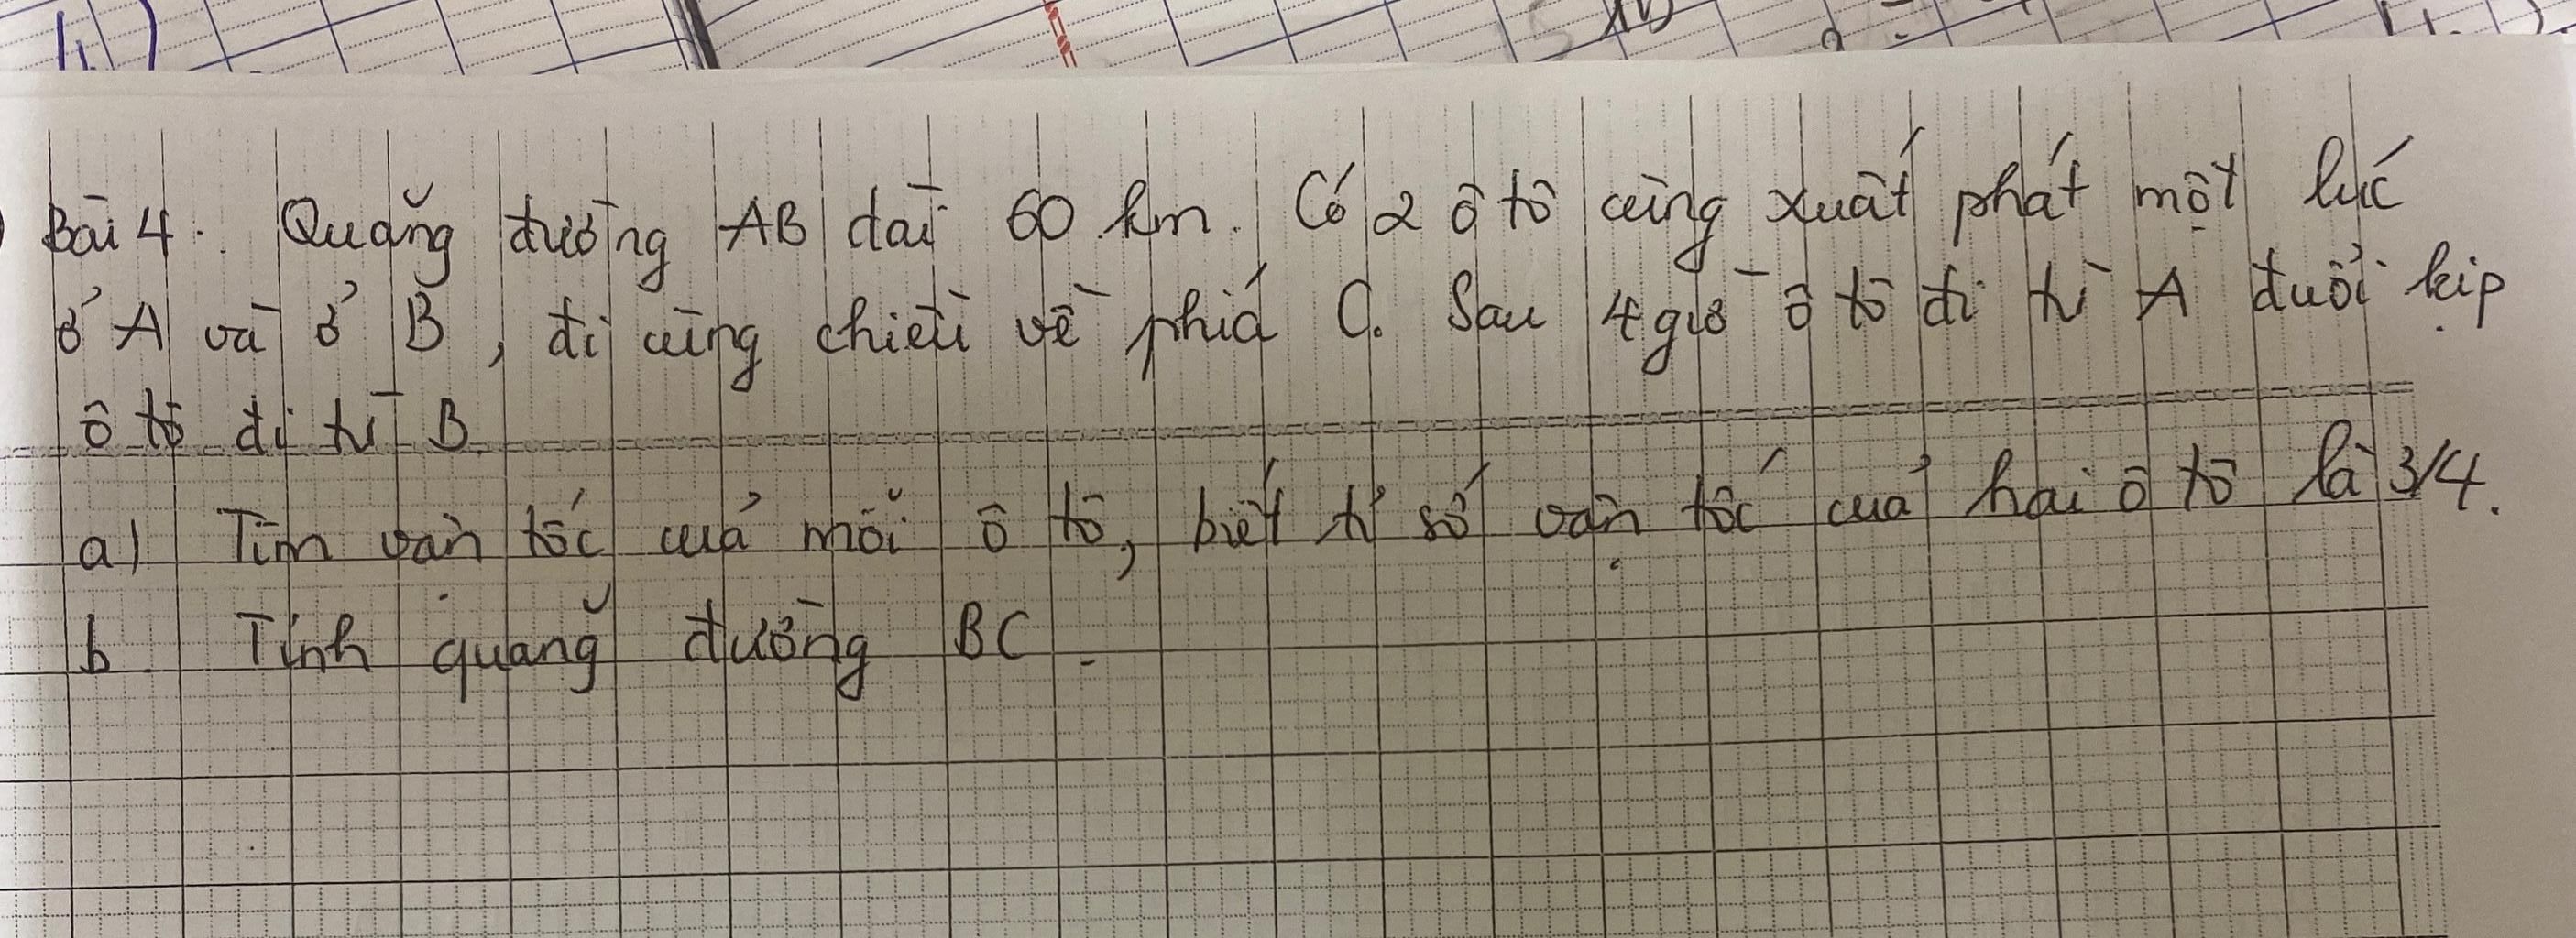 Bài 4: Quãng đường AB dài 60 km. Có 2 ô tô cùng xuất phát một lúc
ở A và ở B, đi cùng chiều về phía C. Sau 4 giờ ô tô đi từ A đuổi kịp
ô tô đi từ B.
a) Tìm vận tốc của mỗi ô tô, biết tỉ số vận tốc của hai ô tô là 3/4.
b Tính quãng đường BC.